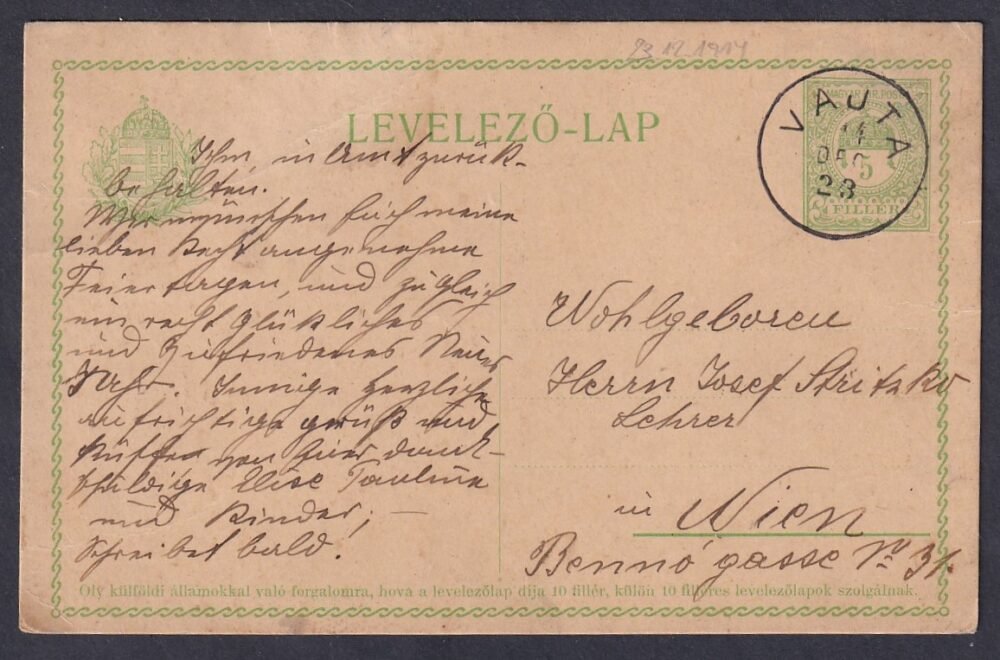 23.12.1914
LEVELEZŐ-LAP
MAGYAR KIR. POSTA
5
FILLÉR
VAJTA
14
DEC
23
Ihm, in Amt zurük-
behalten.
Wir wünschen Euch meine
lieben Recht angenehme
Feiertagen, und zugleich
ein recht glükliches
und Zufriedenes Neues
Jahr. Innige herzliche
aufrichtige grüß und
Küssen von Euer dank-
schuldige Elise Pauline
und Kinder; —
Schreibet bald!
Wohlgeboren
Herrn Josef Stritzko
Lehrer
in Wien
Bennogasse No 31.
Oly külföldi államokkal való forgalomra, hová a levelezőlap díja 10 fillér, külön 10 filléres levelezőlapok szolgálnak.